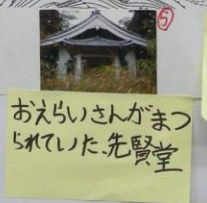 ⑤
おえらいさんがまつ
られていた、先賢堂